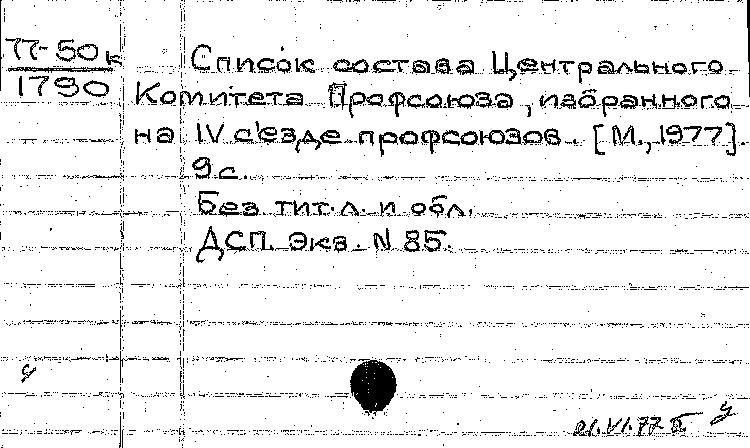 77-50к
1790
Список состава Центрального
Комитета Профсоюза, избранного
на IV с'езде профсоюзов. [М., 1977].
9 с.
Без тит. л. и обл.
ДСП. Экз. N 85.
21.VI.77